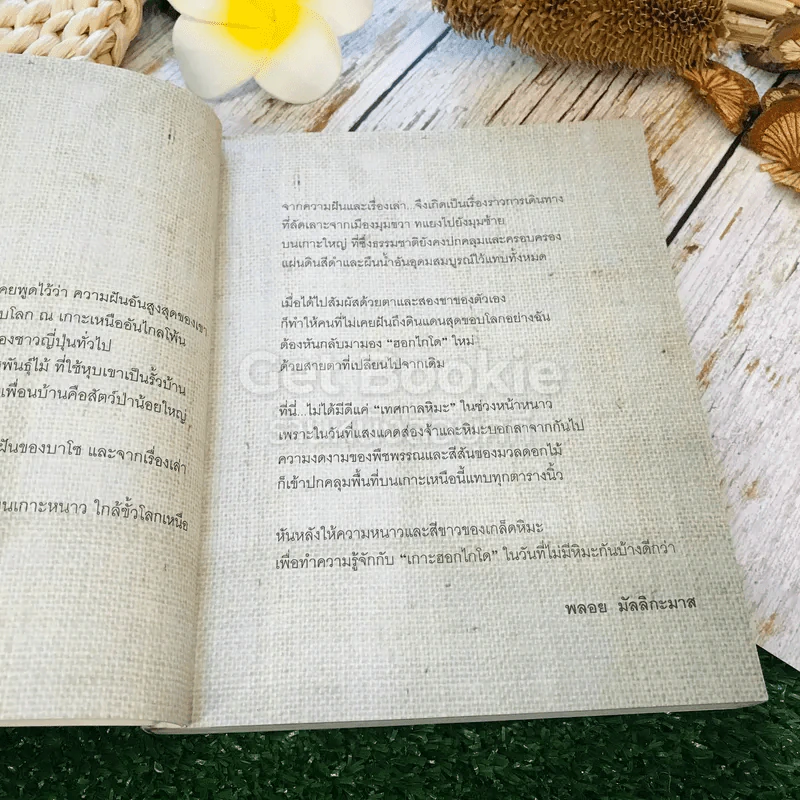 คยพูดไว้ว่า ความฝันอันสูงสุดของเขา
บโลก ณ เกาะเหนืออันไกลโพ้น
องชาวญี่ปุ่นทั่วไป
พันธุ์ไม้ ที่ใช้หุบเขาเป็นรั้วบ้าน
เพื่อนบ้านคือสัตว์ป่าน้อยใหญ่
ฝันของบาโช และจากเรื่องเล่า
นเกาะหนาว ใกล้ขั้วโลกเหนือ
จากความฝันและเรื่องเล่า...จึงเกิดเป็นเรื่องราวการเดินทาง
ที่ลัดเลาะจากเมืองมุมขวา ทแยงไปยังมุมซ้าย
บนเกาะใหญ่ ที่ซึ่งธรรมชาติยังคงปกคลุมและครอบครอง
แผ่นดินสีดำและผืนน้ำอันอุดมสมบูรณ์ไว้แทบทั้งหมด
เมื่อได้ไปสัมผัสด้วยตาและสองขาของตัวเอง
ก็ทำให้คนที่ไม่เคยฝันถึงดินแดนสุดขอบโลกอย่างฉัน
ต้องหันกลับมามอง “ฮอกไกโด” ใหม่
ด้วยสายตาที่เปลี่ยนไปจากเดิม
Get Bookie
ที่นี่...ไม่ได้มีดีแค่ “เทศกาลหิมะ” ในช่วงหน้าหนาว
เพราะในวันที่แสงแดดส่องจ้าและหิมะบอกลาจากกันไป
ความงดงามของพืชพรรณและสีสันของมวลดอกไม้
ก็เข้าปกคลุมพื้นที่บนเกาะเหนือนี้แทบทุกตารางนิ้ว
หันหลังให้ความหนาวและสีขาวของเกล็ดหิมะ
เพื่อทำความรู้จักกับ “เกาะฮอกไกโด” ในวันที่ไม่มีหิมะกันบ้างดีกว่า
พลอย มัลลิกะมาส